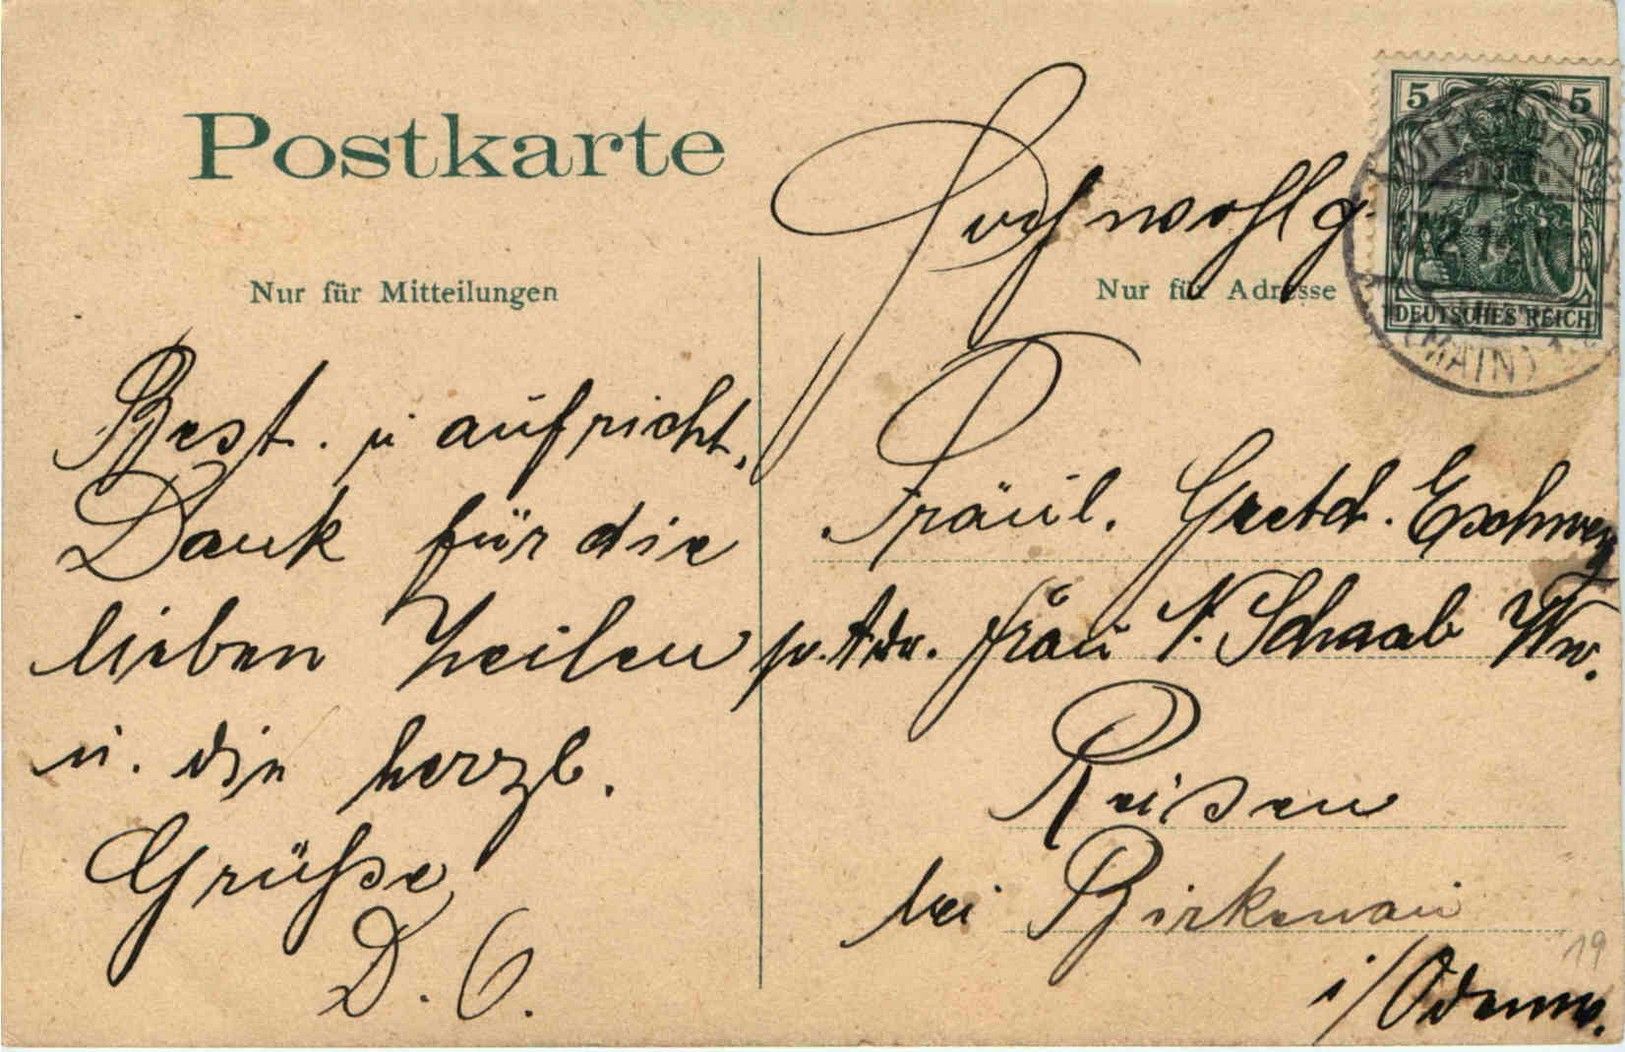 Postkarte
Hochwohlg.
5 5
DEUTSCHES REICH
(MAIN)
Nur für Mitteilungen
Nur für Adresse
Best. u aufricht.
Dank für die
lieben Zeilen
u. die herzl.
Grüße
D. O.
Fräul. Gretch. Eschweg
p. Adr. Frau N. Schaab Ww.
Reisen
bei Birkenau
i/Odenw.
19